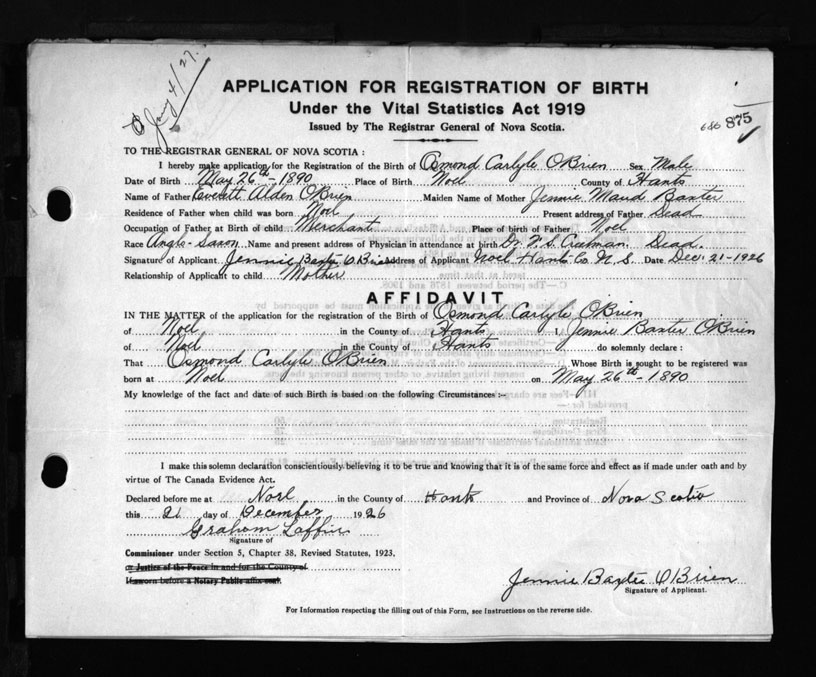 Jany 4/27.
APPLICATION FOR REGISTRATION OF BIRTH
Under the Vital Statistics Act 1919
Issued by The Registrar General of Nova Scotia.
686 875
TO THE REGISTRAR GENERAL OF NOVA SCOTIA :
I hereby make application for the Registration of the Birth of Osmond Carlyle OBrien Sex Male
Date of Birth May 26th - 1890 Place of Birth Noel County of Hants
Name of Father Everett Alden OBrien Maiden Name of Mother Jennie Maud Baxter
Residence of Father when child was born Noel Present address of Father Dead
Occupation of Father at Birth of child Merchant Place of birth of Father Noel
Race Anglo-Saxon Name and present address of Physician in attendance at birth Dr. Creelman Dead.
Signature of Applicant Jennie Baxter OBrien address of Applicant Noel Hants Co N. S. Date Dec. 21 - 1926
Relationship of Applicant to child Mother
AFFIDAVIT
IN THE MATTER of the application for the registration of the Birth of Osmond Carlyle OBrien
of Noel in the County of Hants I, Jennie Baxter OBrien
of Noel in the County of Hants do solemnly declare :
That Osmond Carlyle OBrien Whose Birth is sought to be registered was
born at Noel on May 26th - 1890
My knowledge of the fact and date of such Birth is based on the following Circumstances :-
I make this solemn declaration conscientiously believing it to be true and knowing that it is of the same force and effect as if made under oath and by
virtue of The Canada Evidence Act.
Declared before me at Noel in the County of Hants and Province of Nova Scotia
this 21 day of December 1926
Graham Laffin
Signature of
Commissioner under Section 5, Chapter 38, Revised Statutes, 1923,
or Justice of the Peace in and for the County of
If sworn before a Notary Public affix seal.
Jennie Baxter OBrien
Signature of Applicant.
For Information respecting the filling out of this Form, see Instructions on the reverse side.